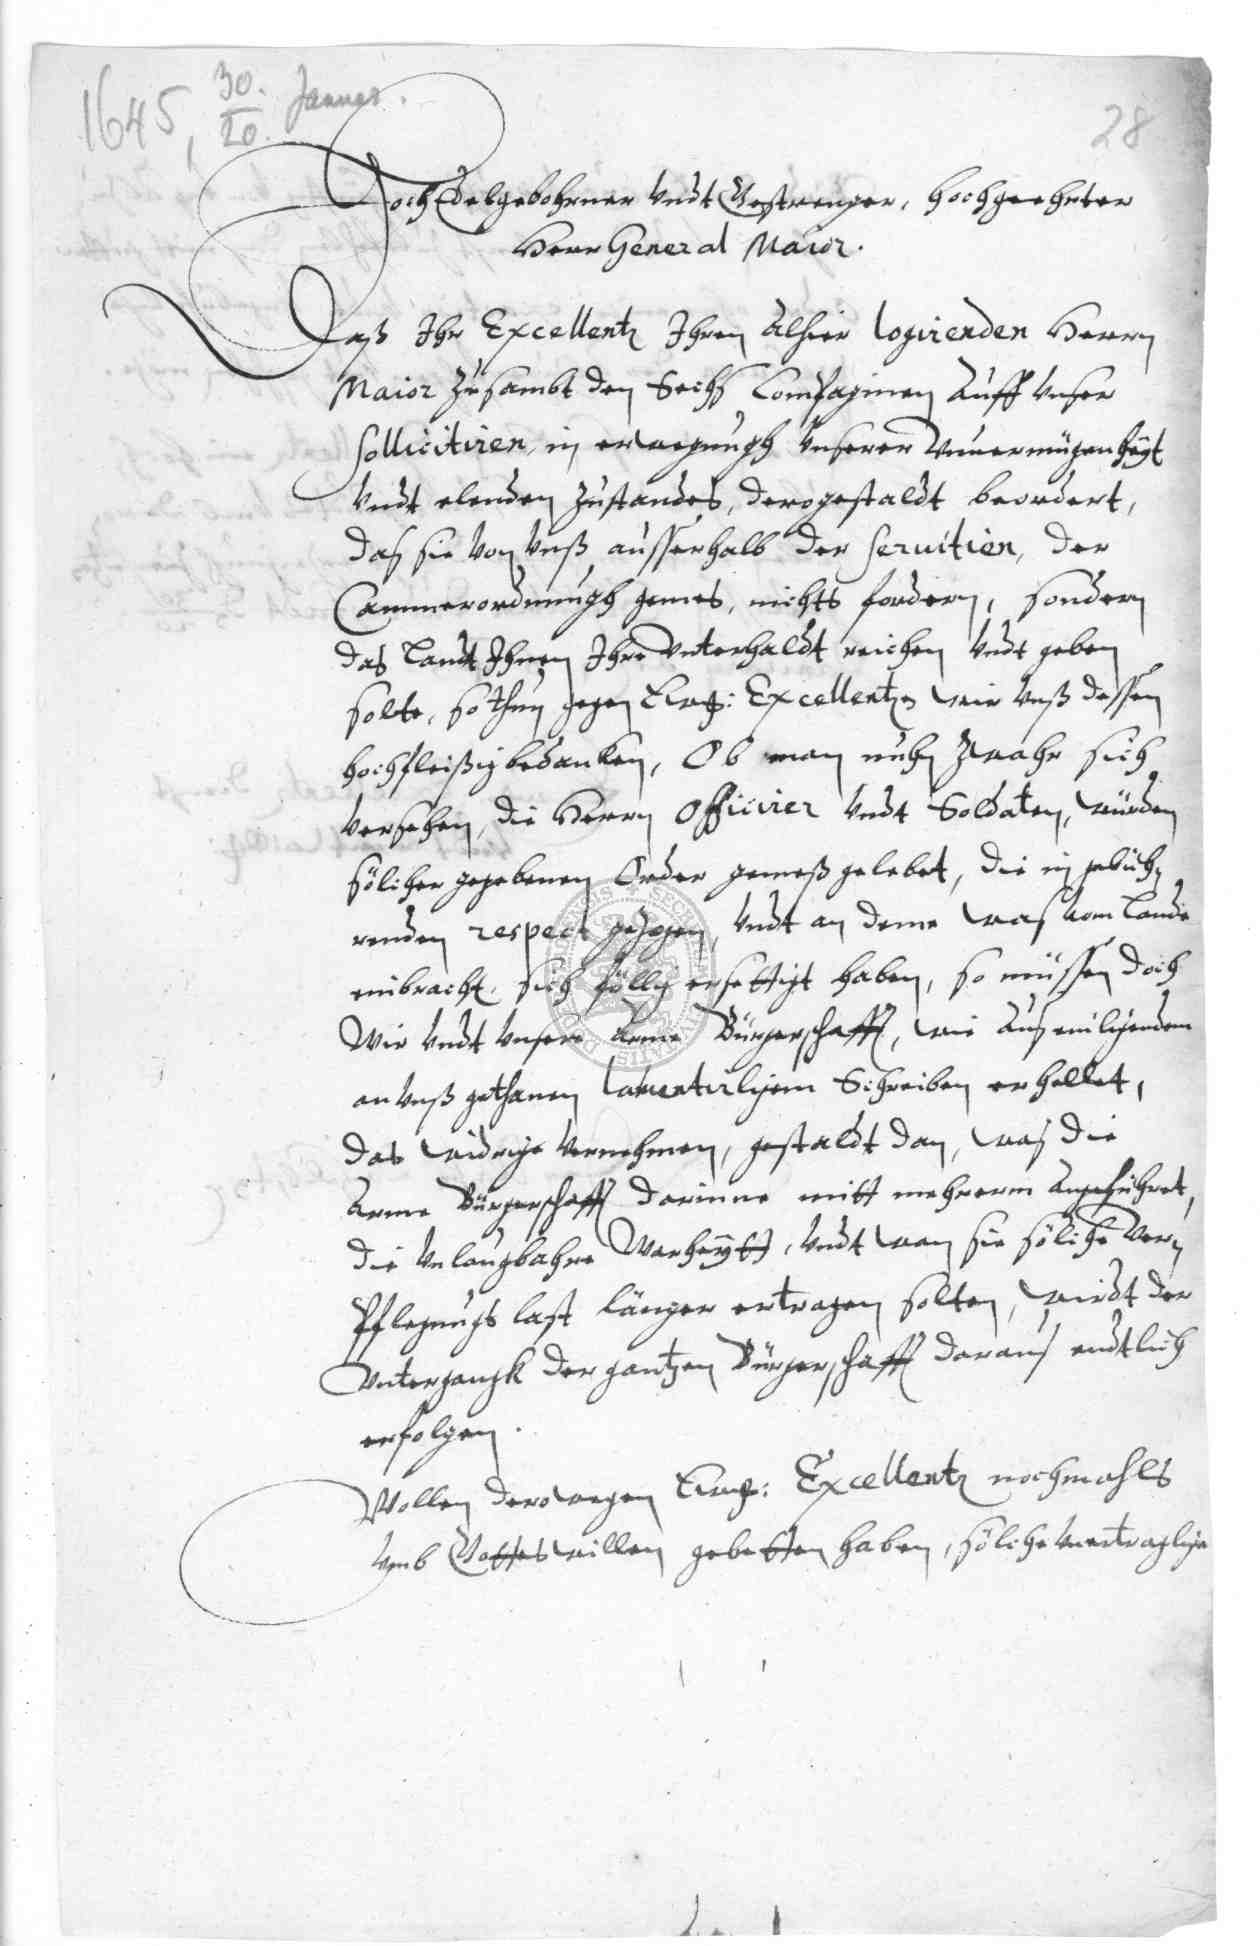 1645, 30./20. Januar.
28
HochEdelgebohrner Undt Gestrenger, hochgeehrter
Herr General Maior.
Daß Ihr Excellentz Ihren alhier logirenden Herrn
Maior zusambt den Sechs Compaginen auff unser
sollicitiren, in erwegnugh Unserer Unuermügenheÿt
Undt elenden zustandes, derogestaldt beordert,
das sie von Unß ausserhalb der seruitien, der
Cammerordnungh gemes, nichts fordern, sondern
das Landt Ihnen Ihre Unterhaldt reichen Undt geben
solte, so thun gegen Ewg: Excellentz wir Unß dessen
hochfleißig bedancken, Ob man nuhn zwahr sich
Versehen, die Herrn Officirer Undt Soldaten, würden
sölicher gegebenen Order gemeß gelebet, die in gebüh-
renden respect gezogen, Undt an deme was vom Lande
einbracht, sich föllig ersettigt haben, so müssen doch
Wir Undt Unsere arme Bürgerschafft, wie aus einligendem
an Unß gethanen lamentirligem Schreiben erhellet,
das widrige Vernehmen, gestaldt dan, was die
Arme Bürgerschafft darinne mitt mehrerm Angeführet,
die Unlaugbahre Warheÿtt, Undt wan sie söliche Ver-
pflegnugs last länger ertragen solten, wirdt der
Untergangk der gantzen Bürgerschafft daraus endtlich
erfolgen.
Wollen derowegen Ewg: Excellentz nochmahls
Umb Gotteswillen gebetten haben, söliche Unertraglige